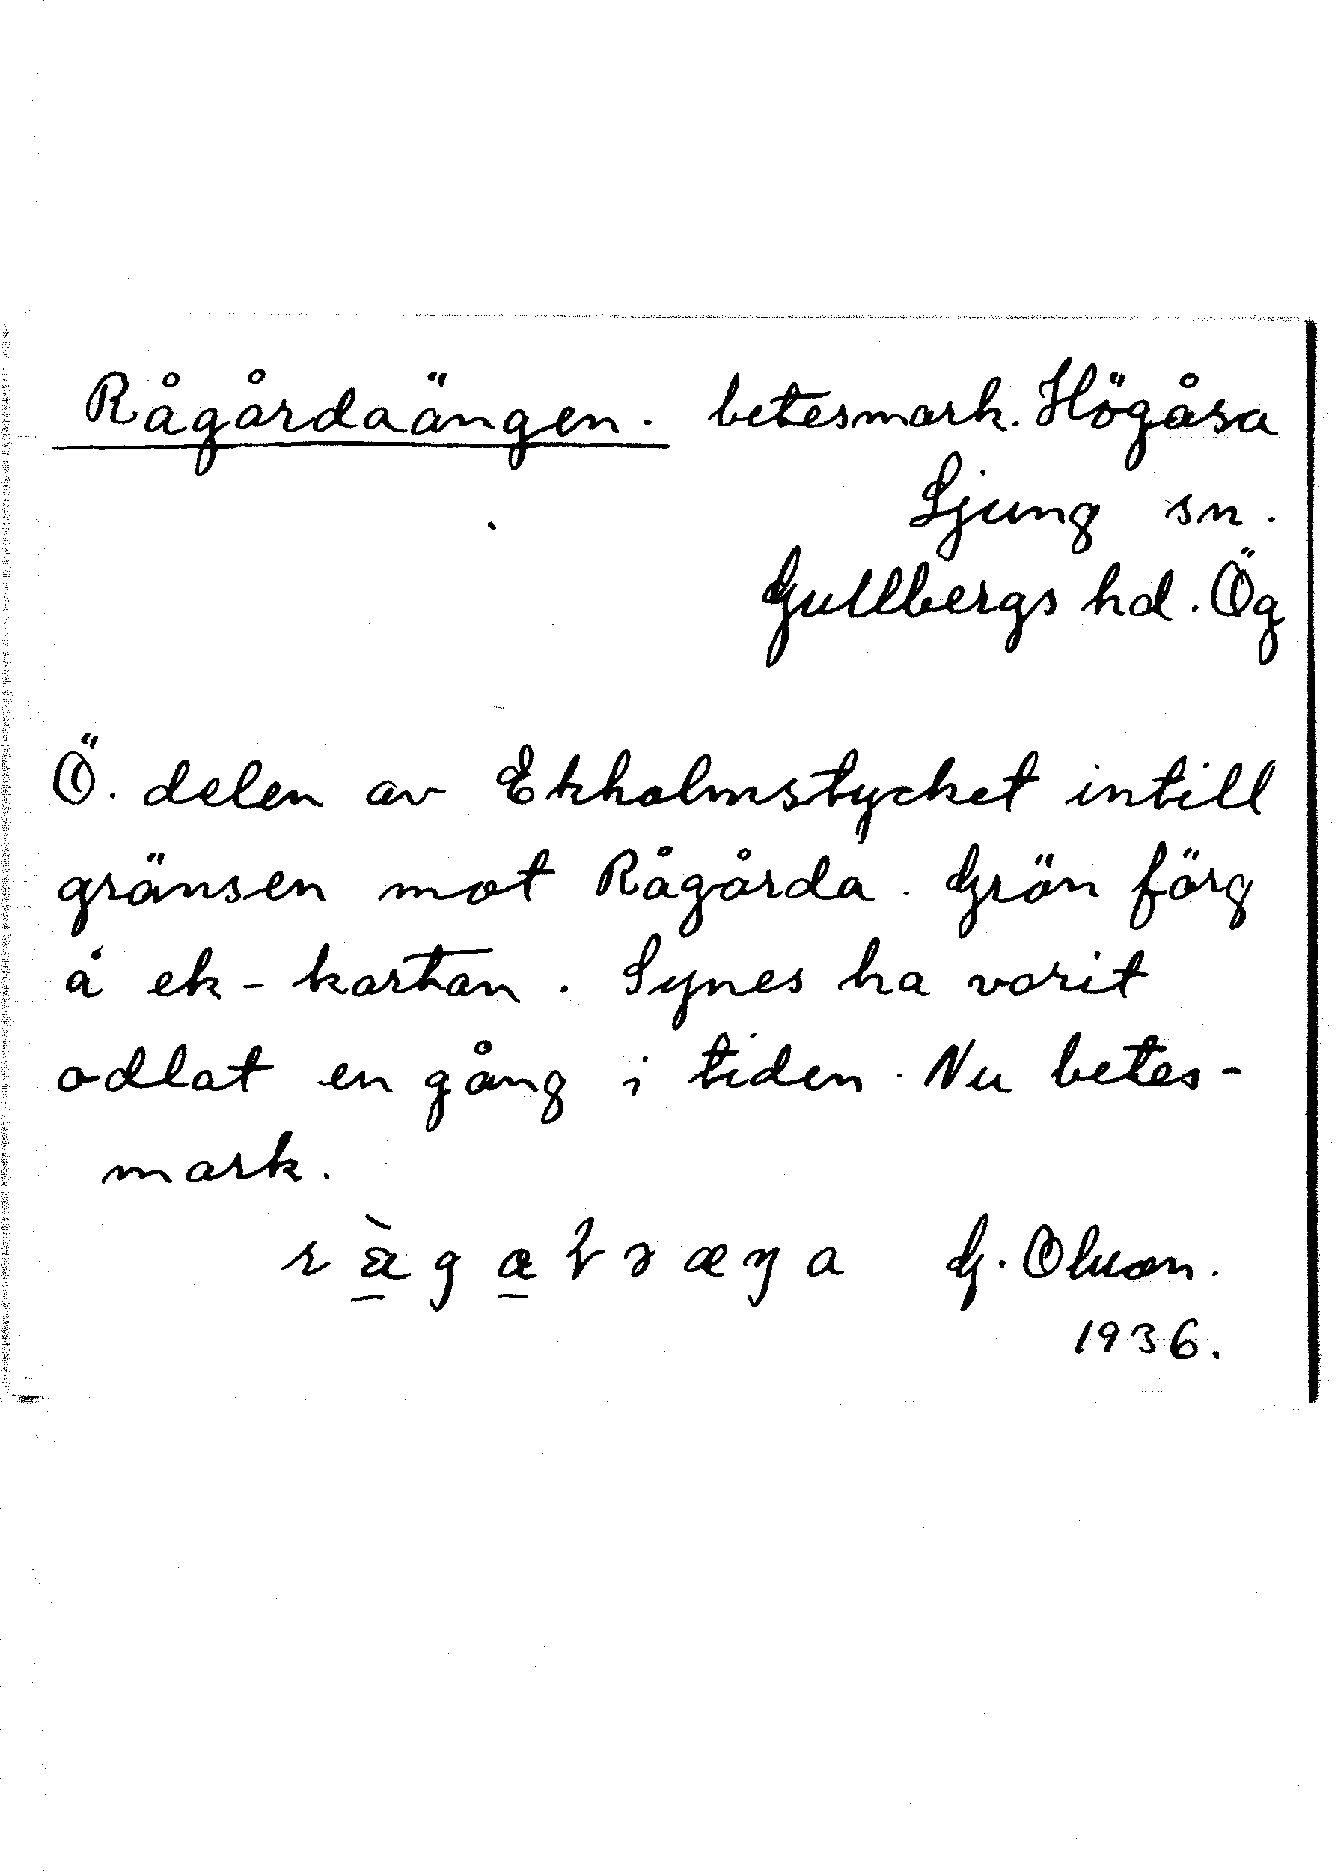 Rågårdaängen. betesmark. Högåsa
Ljung sn.
Gullbergs hd. Ög
Ö. delen av Ekholmstycket intill
gränsen mot Rågårda. Grön färg
å ek-kartan. Synes ha varit
odlat en gång i tiden. Nu betes-
mark.
G. Olson.
1936.